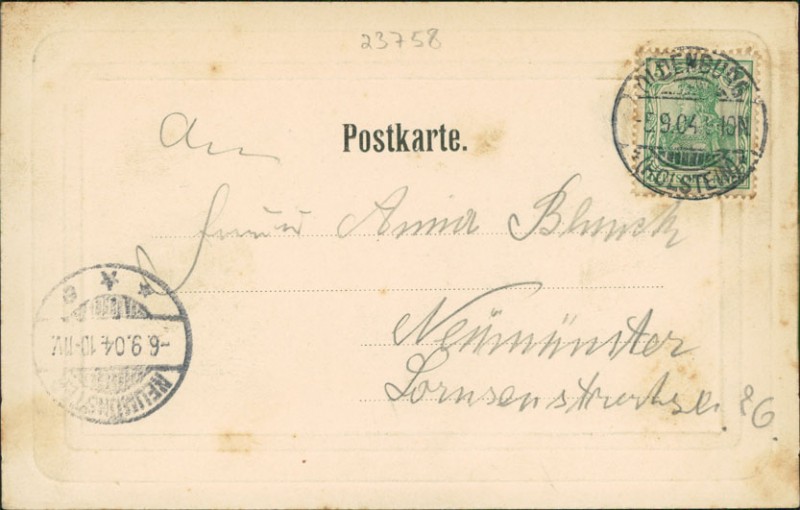 23758
OLDENBURG
5.9.04 9-10N
(HOLSTEIN)
An
Postkarte.
Frau Anna Blunck
Neumünster
-6.9.04.10-11V.
NEUMÜNSTER